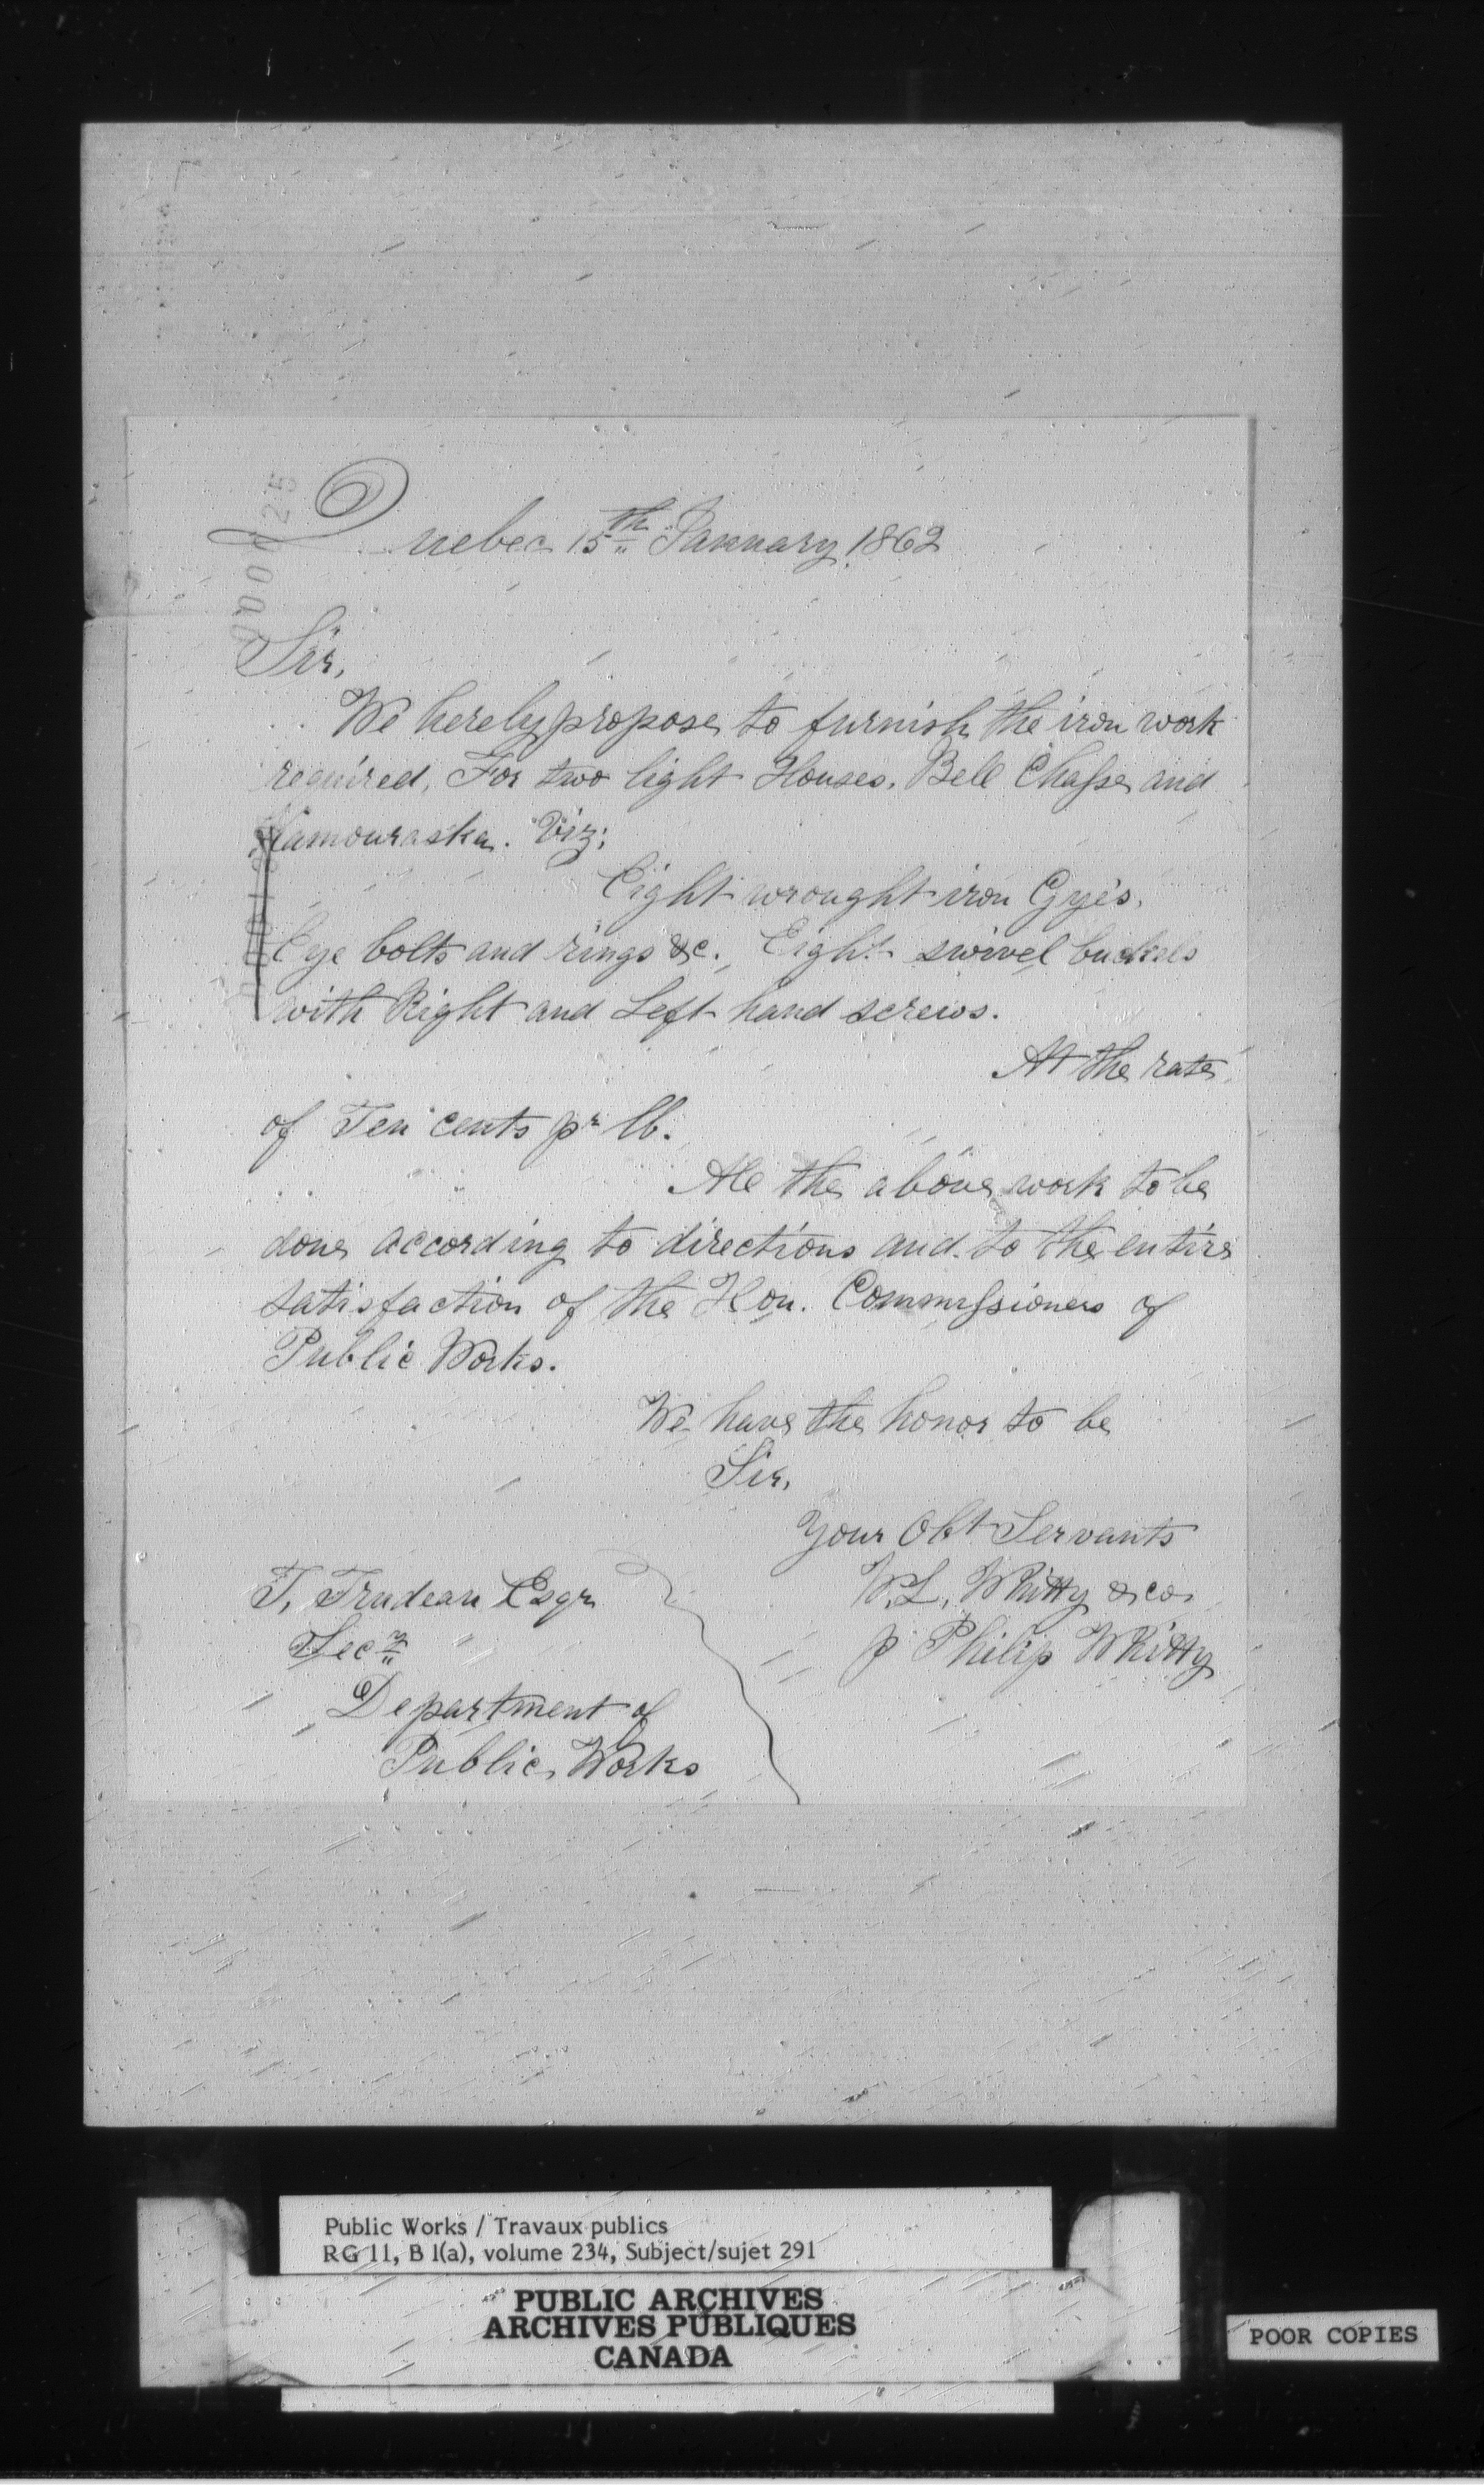 Quebec 15th January 1862
Sir,
We hereby propose to furnish the iron work
required, For two light Houses, Bell Chasse and
Kamouraska. Viz;
Eight wrought iron Gye's,
Eye bolts and rings &c. Eight swivel buckels
with Right and Left hand screws.
At the rate
of Ten cents pr lb.
All the above work to be
done according to directions and to the entire
satisfaction of the Hon. Commissioners of
Public Works.
We have the honor to be
Sir,
Your Obt Servants
W. L. Whitty & co.
p Philip Whitty
T. Trudeau Esqr
Secy
Department of
Public Works
Public Works / Travaux publics
RG 11, B 1(a), volume 234, Subject/sujet 291
PUBLIC ARCHIVES
ARCHIVES PUBLIQUES
CANADA
POOR COPIES